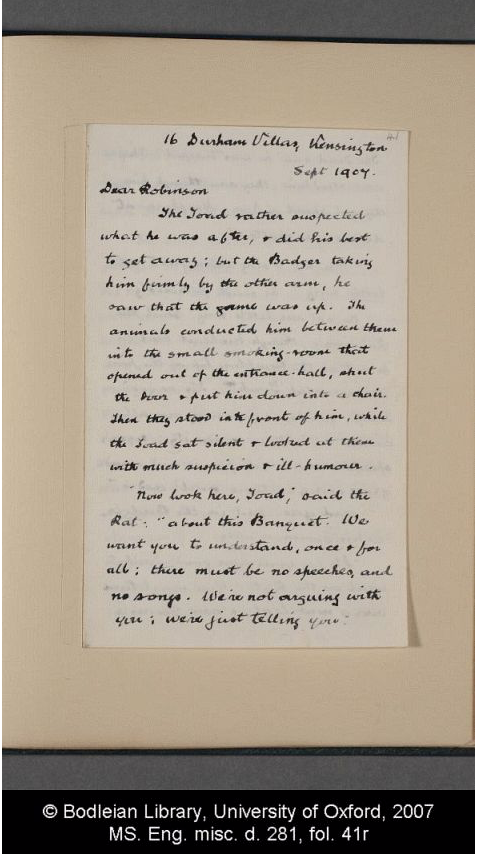 41
16 Durham Villas, Kensington
Sept 1907.
Dear Robinson
The Toad rather suspected
what he was after, & did his best
to get away; but the Badger taking
him firmly by the other arm, he
saw that the game was up. The
animals conducted him between them
into the small smoking-room that
opened out of the entrance-hall, shut
the door & put him down into a chair.
Then they stood in front of him, while
the Toad sat silent & looked at them
with much suspicion & ill-humour.
"Now look here, Toad," said the
Rat: "about this Banquet. We
want you to understand, once & for
all; there must be no speeches, and
no songs. We're not arguing with
you; we're just telling you."
© Bodleian Library, University of Oxford, 2007
MS. Eng. misc. d. 281, fol. 41r